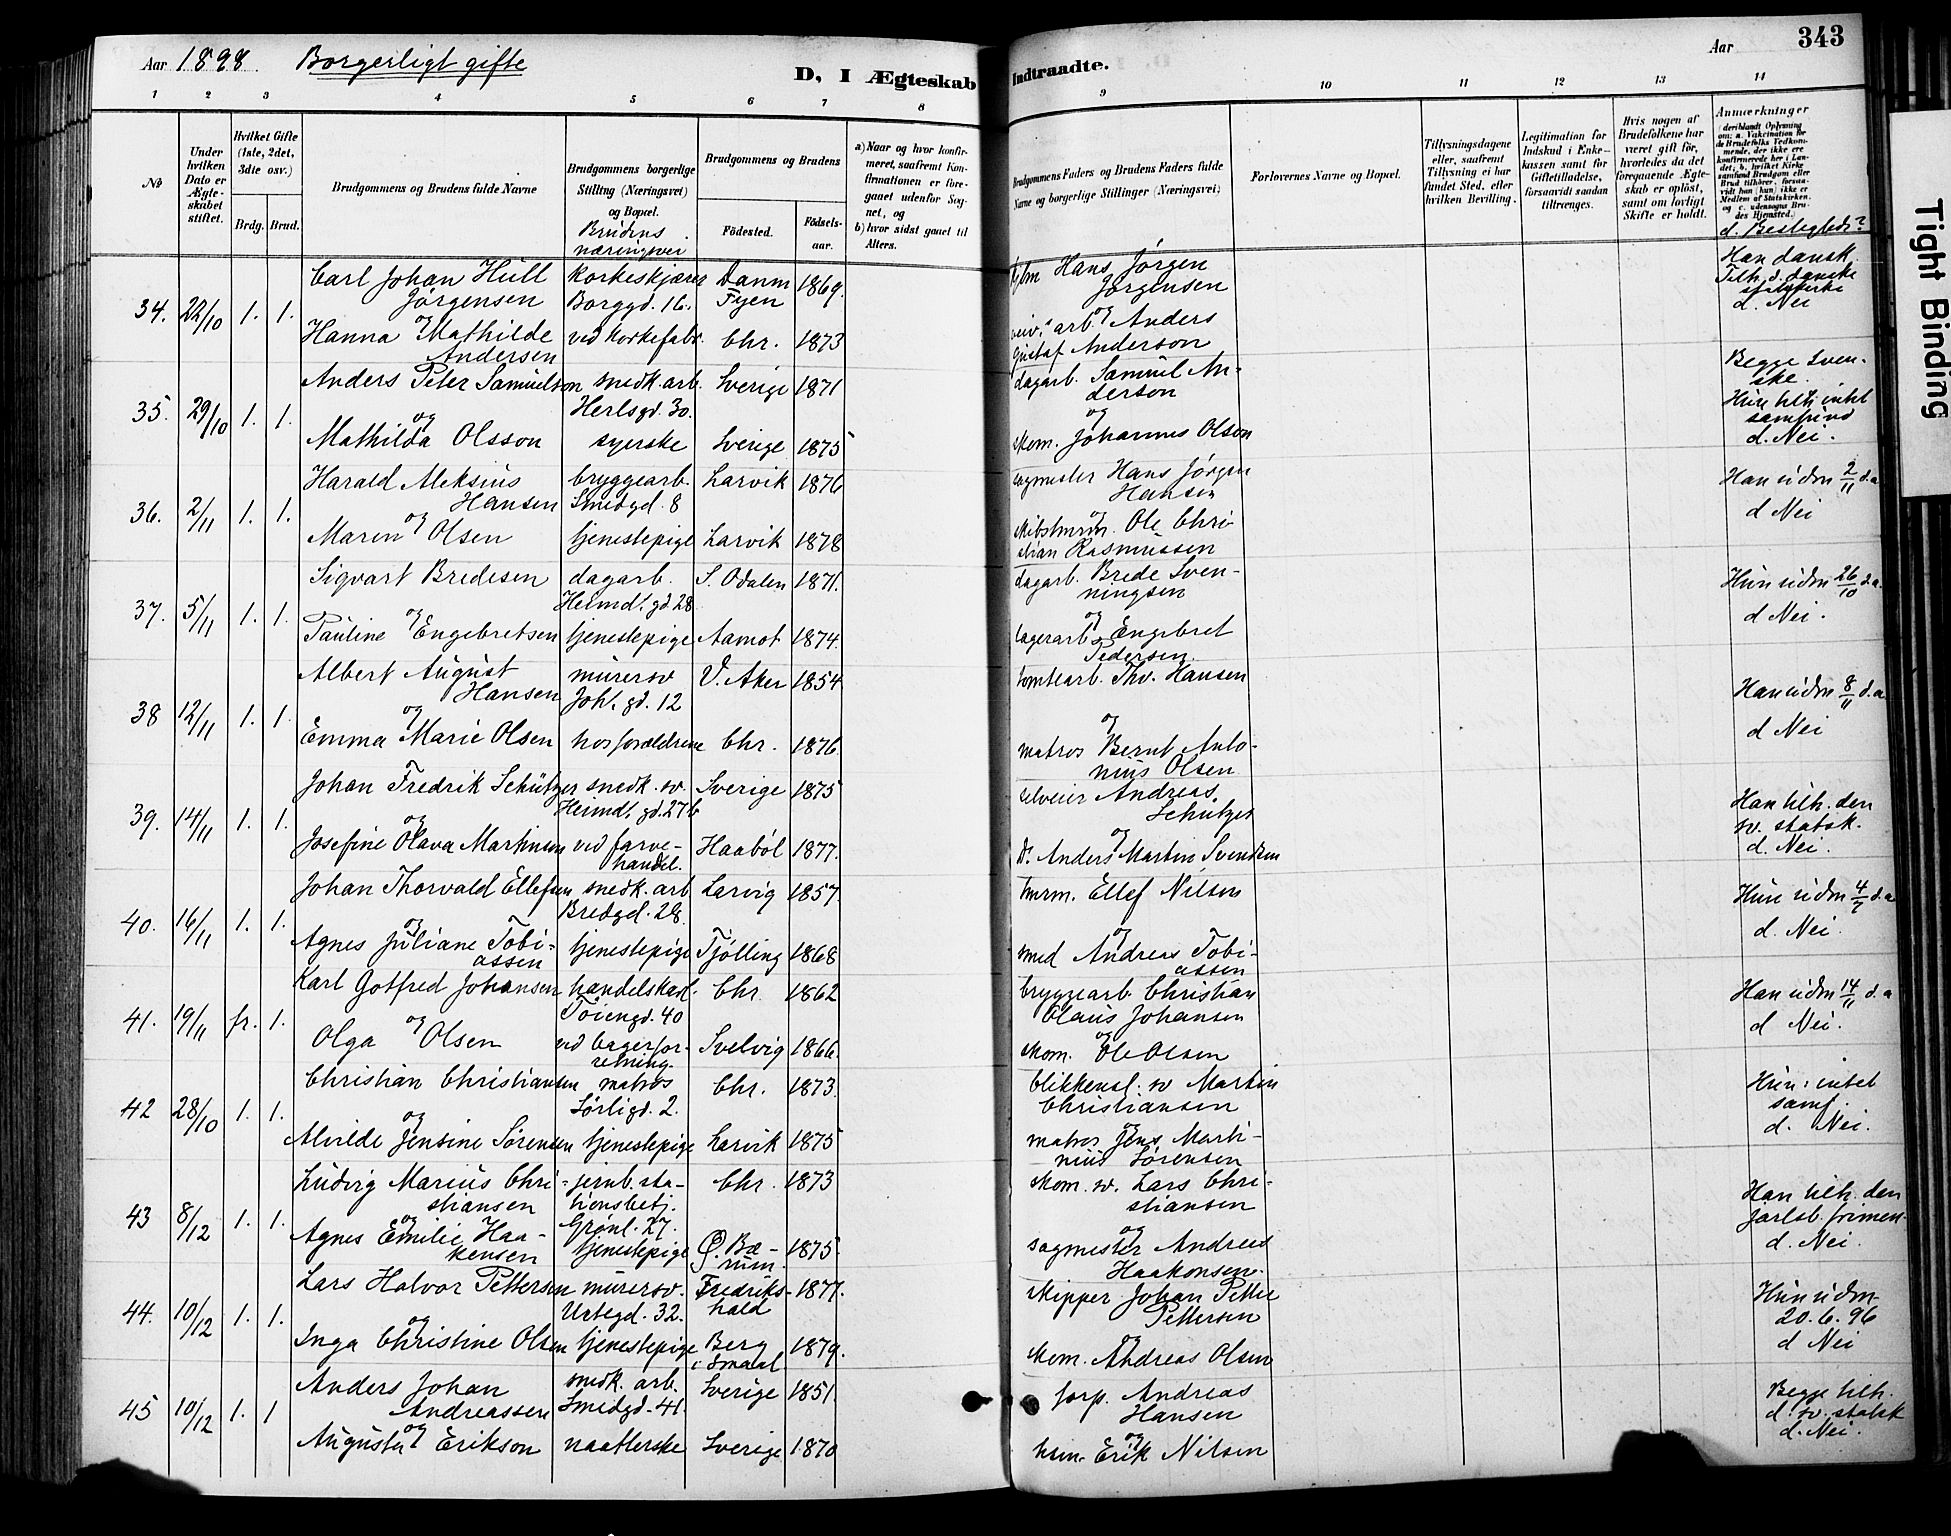 Aar 1898. Borgerligt gifte
D, I Ægteskab
Indtraadte.
Aar
343
1 2 3 4 5 6 7 8
9 10 11 12 13 14
No
Under hvilken Dato er Ægteskabet stiftet.
Hvilket Gifte (1ste, 2det, 3die osv.)
Brdg. Brud.
Brudgommens og Brudens fulde Navne
Brudgommens borgerlige Stilling (Næringsvei) og Bopæl.
Brudens næringsvei
Brudgommens og Brudens
Födested.
Födselsaar.
a) Naar og hvor konfirmeret, saafremt Konfirmationen er foregaaet udenfor Sognet, og
b) hvor sidst gaaet til Alters.
Brudgommens Faders og Brudens Faders fulde Navne og borgerlige Stillinger (Næringsvei)
Forlovernes Navne og Bopæl.
Tillysningsdagene eller, saafremt Tillysning ei har fundet Sted, efter hvilken Bevilling.
Legitimation for Indskud i Enkekassen samt for Giftetilladelse, forsaavidt saadan tiltrænges.
Hvis nogen af Brudefolkene har været gift før, hvorledes da det foregaaende Ægteskab er oplöst, samt om lovligt Skifte er holdt.
Anmærkninger (deriblandt Oplysning om: a. Vakcination for de Brudefolks Vedkommende, der ikke ere konfirmerede her i Landet; b. hvilket Kirkesamfund Brudgom eller Brud tilhører, forsaavidt han (hun) ikke er Medlem af Statskirken, og c. udensogns Brudes Hjemsted.)
d. Beslegtede?
34. 22/10 1. 1. Carl Johan Hull Jörgensen korkeskjærer Borggd. 16. Danm Fyen 1869.
og
Hanna Mathilde Andersen ved korkefabr. Chr. 1873
Hans Jörgen Jörgensen
og
arb. Anders Gustaf Anderson
Han dansk
Tilh. d. danske
d. Nei
35. 29/10 1. 1. Anders Peter Samuelson snedk. arb. Herlsgd. 30. Sverige 1871
og
Mathilda Olsson syerske Sverige 1875
dagarb. Samuel Anderson
og
skom. Johannes Olson
Begge svenske.
Hun tilh. intet samfund
d. Nei.
36. 2/11 1. 1. Harald Aleksius Hansen bryggearb. Smedgd. 8 Larvik 1876
og
Maren Olsen tjenestepige Larvik 1878
sagmester Hans Jörgen Hansen
og
Ole Christian Rasmussen
Han udm 2/11 d.a
d Nei
37. 5/11 1. 1. Sigvart Bredesen dagarb. Heimd. gd 28 S. Odalen 1871.
og
Pauline Engebretsen tjenestepige Aamot 1874.
dagarb. Brede Svenningsen
og
lagerarb. Engebret Pedersen.
Hun udm 26/10 d.a.
d Nei.
38 12/11 1. 1. Albert August Hansen murersv Joh. gd. 12 V. Aker 1854
og
Emma Marie Olsen hos forældrene Chr. 1876.
tomtearb. Thv. Hansen
og
matros Bernt Antonius Olsen
Han udm 8/11 d.a
d Nei
39. 14/11 1. 1. Johan Fredrik Schützer snedk. sv. Heimd. gd. 27b Sverige 1875
og
Josefine Olava Martinsen ved farvehandel. Haaböl 1877.
selveier Andreas Schützer
og
Anders Martin Svendsen
Han tilh. den sv. statsk.
d. Nei.
40. 16/11 1. 1. Johan Thorvald Ellefsen snedk. arb Bredgd. 28. Larvig 1857.
og
Agnes Juliane Tobiassen tjenestepige Tjölling 1868
tmrm. Ellef Nilsen
og
smed Andreas Tobiassen
Hun udm 4/7 d.a
d. Nei.
41. 19/11 fr. 1. Karl Gotfred Johansen handelskarl. Töiengd. 40 Chr. 1862
og
Olga Olsen ved bagerforretning. Svelvig 1866.
bryggearb. Christian Claus Johansen
og
skom. Ole Olsen
Han udm 14/11 d.a
d Nei.
42 28/10 1. 1. Christian Christiansen matros Sörligd. 2. Chr. 1873.
og
Alvilde Jensine Sörensen tjenestepige Larvik 1875
blikkensl. sv Martin Christiansen
og
matros Jens Martinius Sörensen
Hun: intet samf.
d. Nei.
43 8/12 1. 1. Ludvig Marius Christiansen jernb. stationsbetj. Grönl. 27. Chr. 1873
og
Agnes Emilie Haakensen tjenestepige Ø. Bærum. 1875.
skom. sv. Lars Christiansen
og
sagmester Andreas Haakonsen.
Han tilh. den jarlsb. frimen.
d. Nei.
44. 10/12 1. 1. Lars Halvor Pettersen murersv. Urtegd. 32. Fredrikshald 1877.
og
Inga Christine Olsen tjenestepige Berg i Smaal. 1879.
skipper Johan Petter Pettersen
og
skom. Andreas Olsen
Hun udm. 20.6.96
d Nei
45 10/12 1. 1 Anders Johan Andreassen snedk. arb. Smedgd. 41. Sverige 1851.
og
Augusta Erikson naatlerske Sverige 1870
forp. Andreas Hansen
og
Erik Nilsen
Begge tilh. d. sv. statsk
d. Nei.
Tight Binding